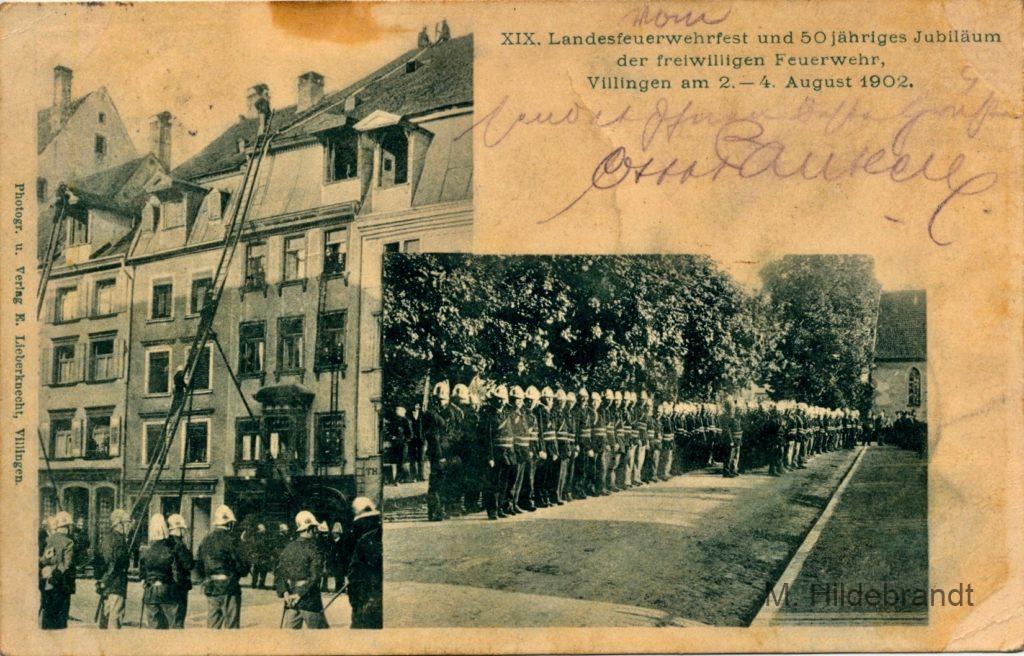 vom
XIX. Landesfeuerwehrfest und 50 jähriges Jubiläum
der freiwilligen Feuerwehr,
Villingen am 2.—4. August 1902.
sendet Ihnen beste Grüße
Photogr. u. Verlag E. Lieberknecht, Villingen.
TH
M. Hildebrandt